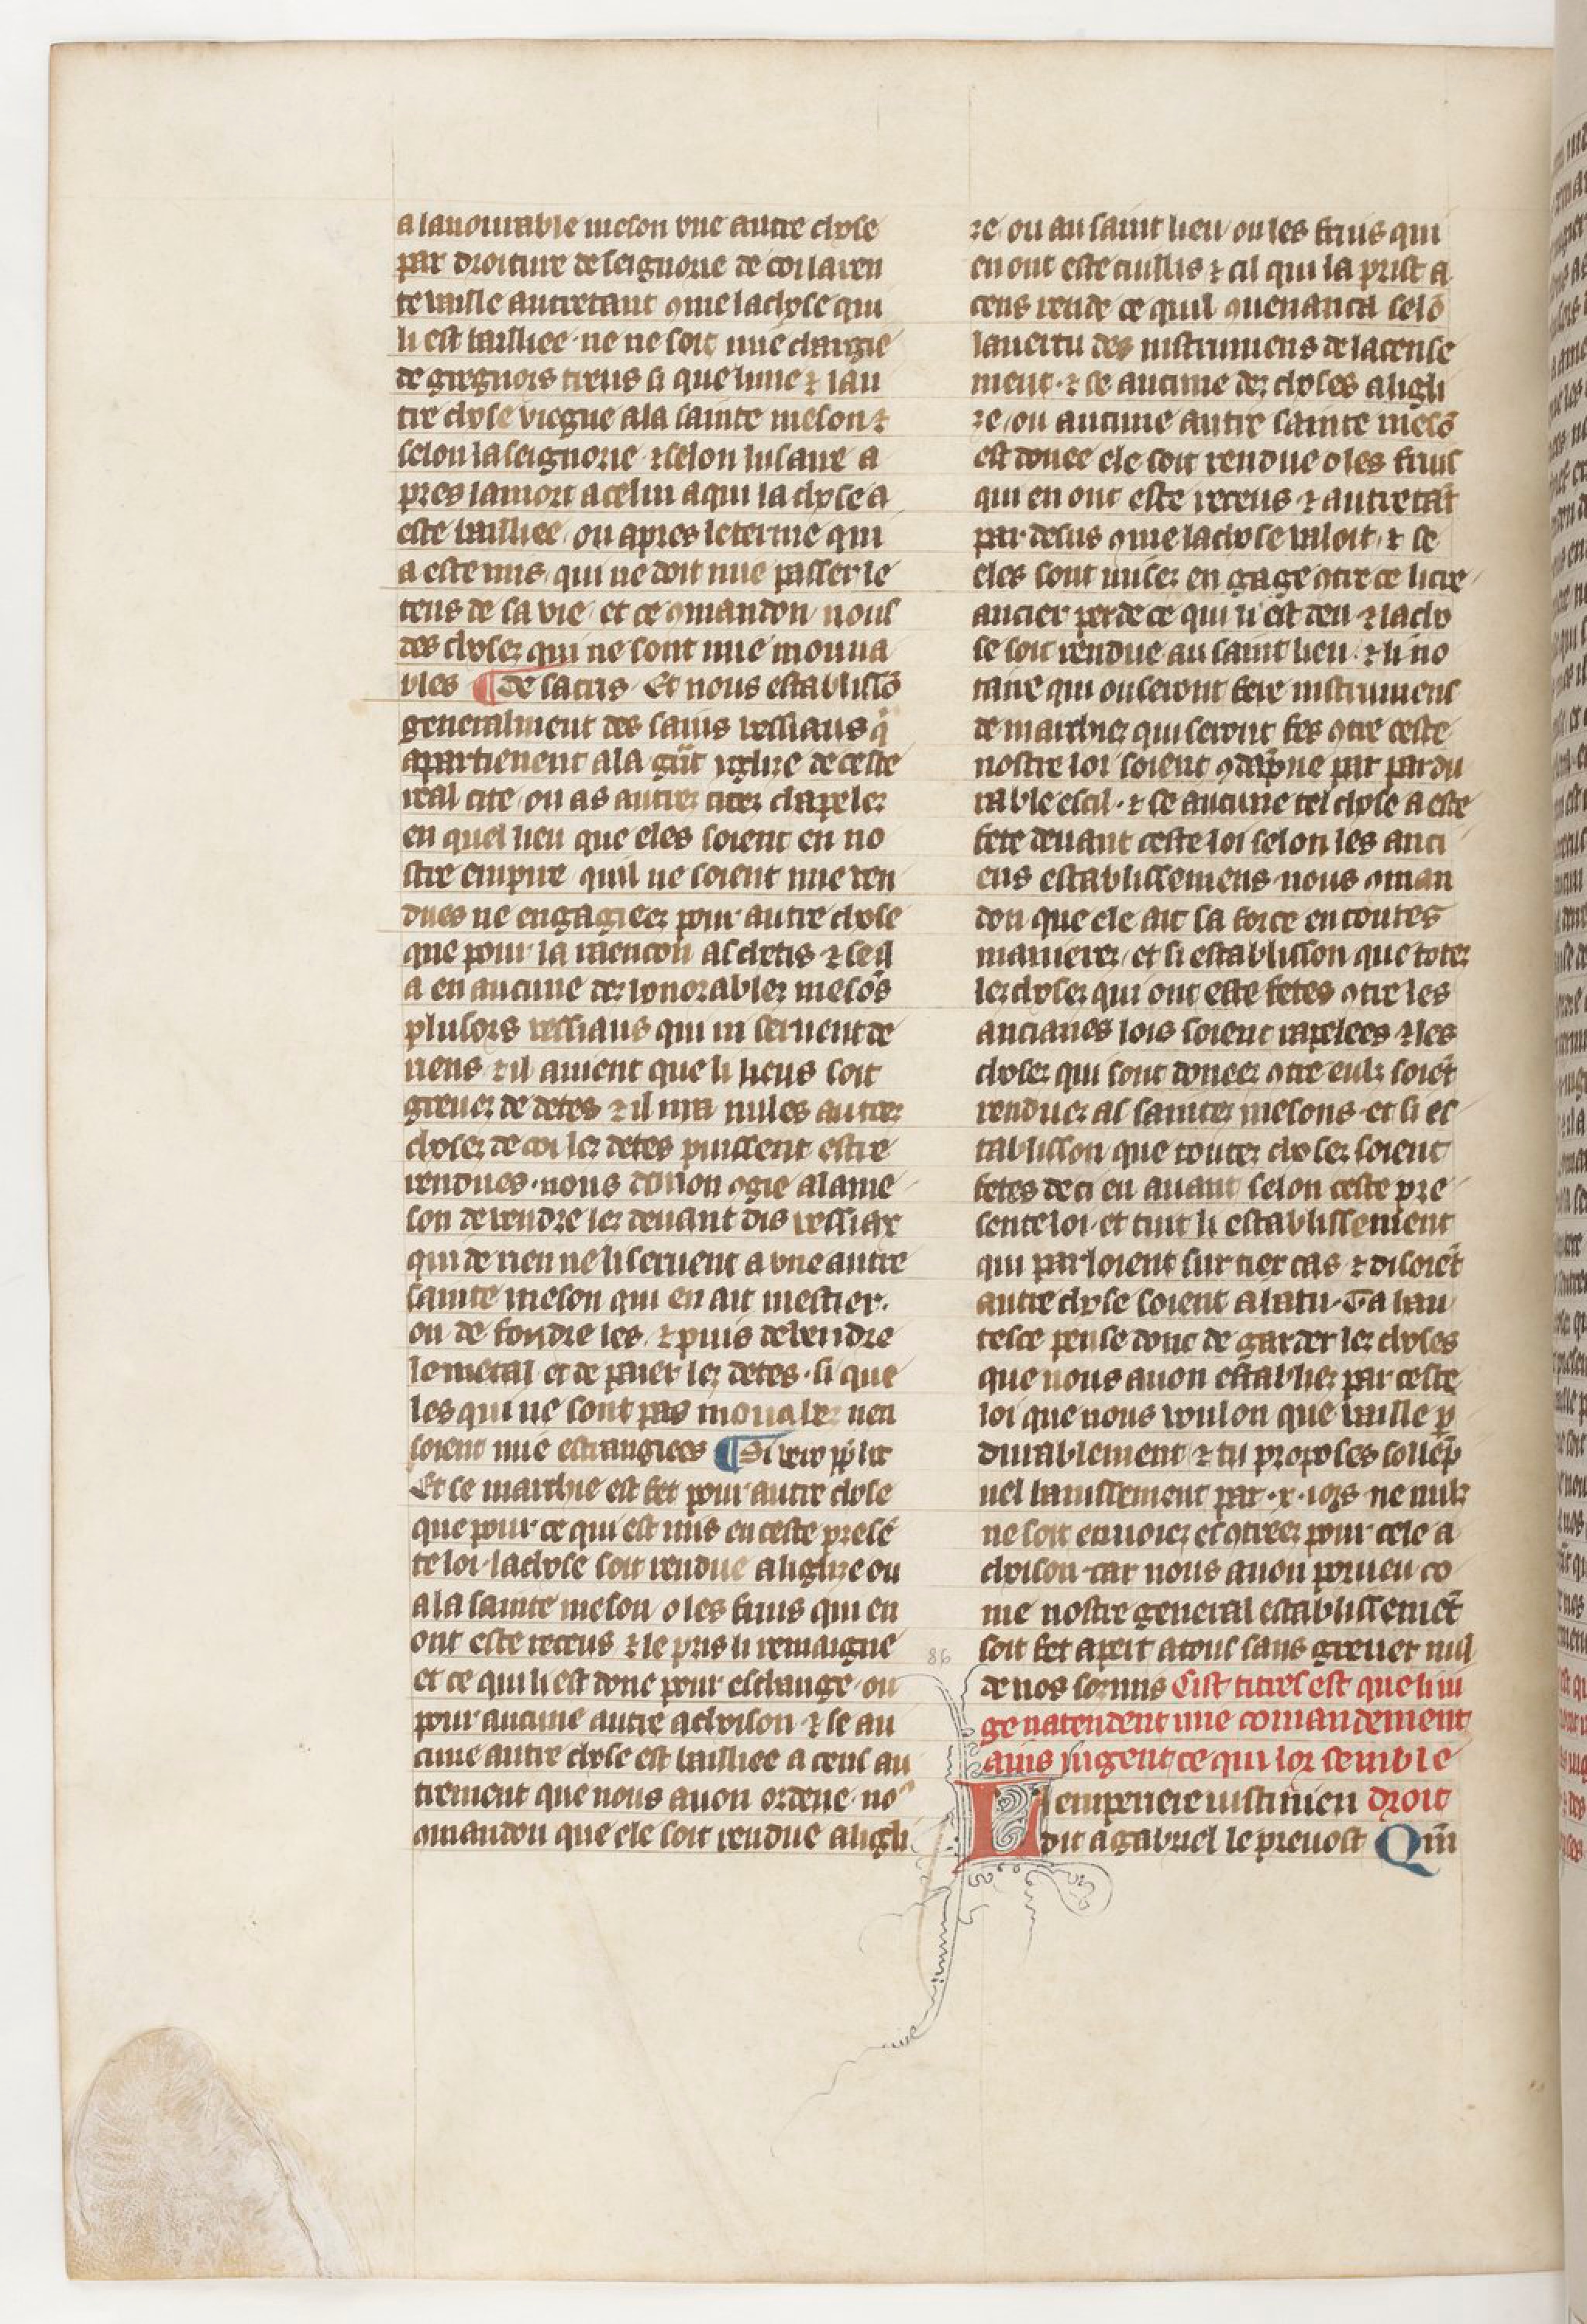 a lanourable meson vne autre chose
par droiture de seignorie de coi la ren
te vaille autretant 9me la chose qui
li est bailliee ne ne soit mie chargie
de gregnors treus si que lune ⁊ lau
tre chose viegne a la sainte meson ⁊
selon la seignorie ⁊ selon lusaire a
pres la mort a celui a qui la chose a
este bailliee ou apres le terme qui
a este mis qui ne doit mie passer le
tens de sa vie et ce 9mandon nous
des chosez qui ne sont mie mouua
bles ¶ de sacris Et nous establissõ
generalment des sains vessiaus q̃
apartienent a la g̃nt yglize de ceste
real cite ou as autrez citez chapelez
en quel lieu que eles soient en no
stre empire quil ne soient mie ven
dues ne engagieez pour autre chose
que pour la raencon as chetis ⁊ se il
a en aucune dez honorablez mesõs
plusors vessiaus qui ni seruent de
riens ⁊ il auient que li lieus soit
greuez de detes ⁊ il ni a nules autrez
chosez de coi lez detes puissent estre
rendues nous donon 9gie a la me
son de vendre lez deuant dis vessiax
qui de rien ne li seruent a vne autre
sainte meson qui en ait mestier
ou de fondre les ⁊ puis de vendre
le metal et de paier lez detes si que
les qui ne sont pas mouablez nen
soient mie estrangiees ¶ Si vero
Et se marchie est fet pour autre chose
que pour ce qui est mis en ceste presẽ
te loi la chose soit rendue a liglize ou
a la sainte meson o les fruis qui en
ont este receus ⁊ le pris li remaigne
et ce qui li est done pour eschange ou
pour aucune autre achoison ⁊ se au
cune autre chose est bailliee a ceus au
trement que nous auon ordene no9
9mandon que ele soit rendue a ligli
ze ou au saint lieu ou les fruis qui
en ont este cuillis ⁊ cil qui la prist a
cens rende ce quil 9uenanca selõ
la uertu des instrumens de lacense
ment ⁊ se aucune dez choses a ligli
ze ou aucune autre sainte mesõ
est donee ele soit rendue o les fruis
qui en ont este receus ⁊ autretãt
par desus 9me la chose valoit ⁊ se
eles sont misez en gage 9tre ce li cre
ancier perde ce qui li est deu ⁊ la cho
se soit rendue au saint lieu ⁊ li no
taire qui oseront fere instrumens
de marchiez qui seront fes 9tre ceste
nostre loi soient 9dãpne par pardu
rable escil ⁊ se aucune tel chose a este
fete deuant ceste loi selon les anci
ens establissemens nous 9man
don que ele ait sa force en toutes
manierez et si establisson que totez
lez chosez qui ont este fetes 9tre les
ancianes lois soient rapelees ⁊ les
chosez qui sont doneez 9tre eulz soiẽt
renduez as saintez mesons et si es
tablisson que toutez chosez soient
fetes de ci en auant selon ceste pre
sente loi et tuit li establissement
qui parloient sur tier cas ⁊ disoiẽt
autre chose soient abatu Ta hau
tesce pense donc de garder lez choses
que nous auon establiez par ceste
loi que nous voulon que vaille p̲
durablement ⁊ tu proposes sollẽp
nel banissement par x iors ne nulz
ne soit enuoiez es 9treez pour cele a
choison car nous auon porueu co
me nostre general establissemẽt
soit fet apert a tous sans greuer nul
86
de nos sozmis Cist titres est que li iu
ge natendent mie comandement
ains iugent ce qui lor semble
Lempereire iustinien droit
dit a gabriel le preuost Qm̃